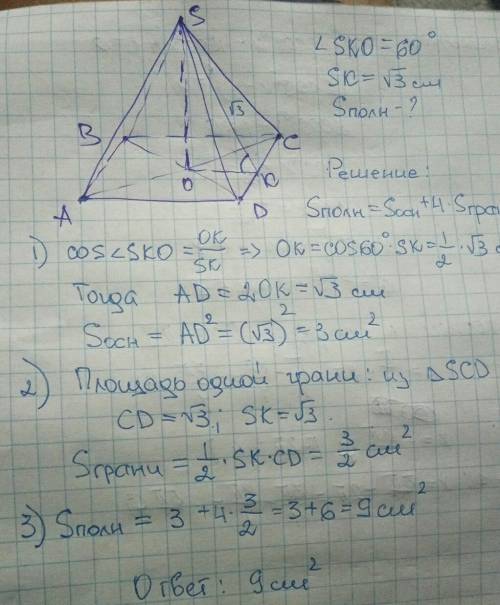 S
∠SKO = 60°
SK = √3 см
Sполн - ?
√3
B
C
O
K
A
D
Решение:
Sполн = Sосн + 4·Sграни
1) cos∠SKO = OK/SK => OK = cos60°·SK = 1/2·√3 с
Тогда AD = 2OK = √3 см
Sосн = AD² = (√3)² = 3 см²
2) Площадь одной грани: из △SCD
CD = √3; SK = √3.
Sграни = 1/2·SK·CD = 3/2 см²
3) Sполн = 3 + 4·3/2 = 3 + 6 = 9 см²
Ответ: 9 см²